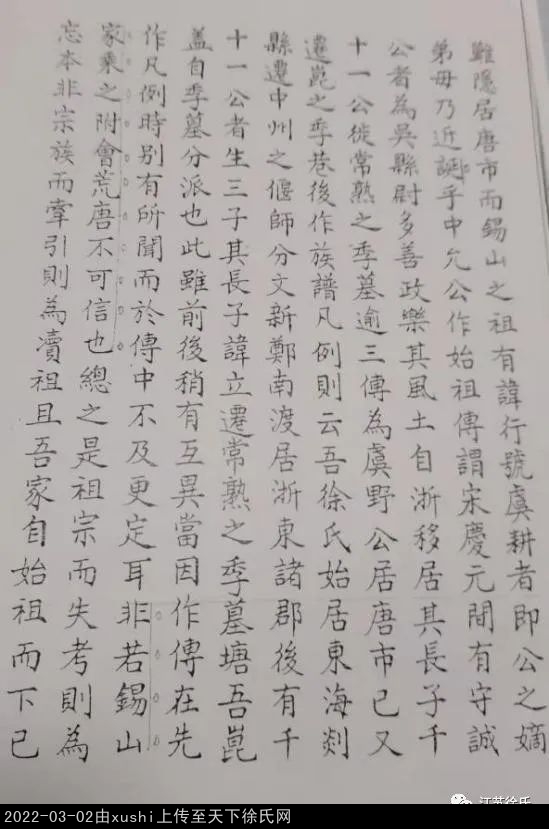 雖隱居唐市而錫山之祖有諱行號虞耕者即公之嫡
弟毋乃近誕乎中允公作始祖傳謂宋慶元間有守誠
公者為吳縣尉多善政樂其風土自浙移居其長子千
十一公徙常熟之季墓逾三傳為虞野公居唐市已又
遷崑之季巷後作族譜凡例則云吾徐氏始居東海剡
縣遷中州之偃師分文新鄭南渡居浙東諸郡後有千
十一公者生三子其長子諱立遷常熟之季墓塘吾崑
盖自季墓分派也此雖前後稍有互異當因作傳在先
作凡例時別有所聞而於傳中不及更定耳非若錫山
家乘之附會荒唐不可信也總之是祖宗而失考則為
忘本非宗族而牽引則為瀆祖且吾家自始祖而下已
江苏徐氏
2022-03-02由xushi上传至天下徐氏网